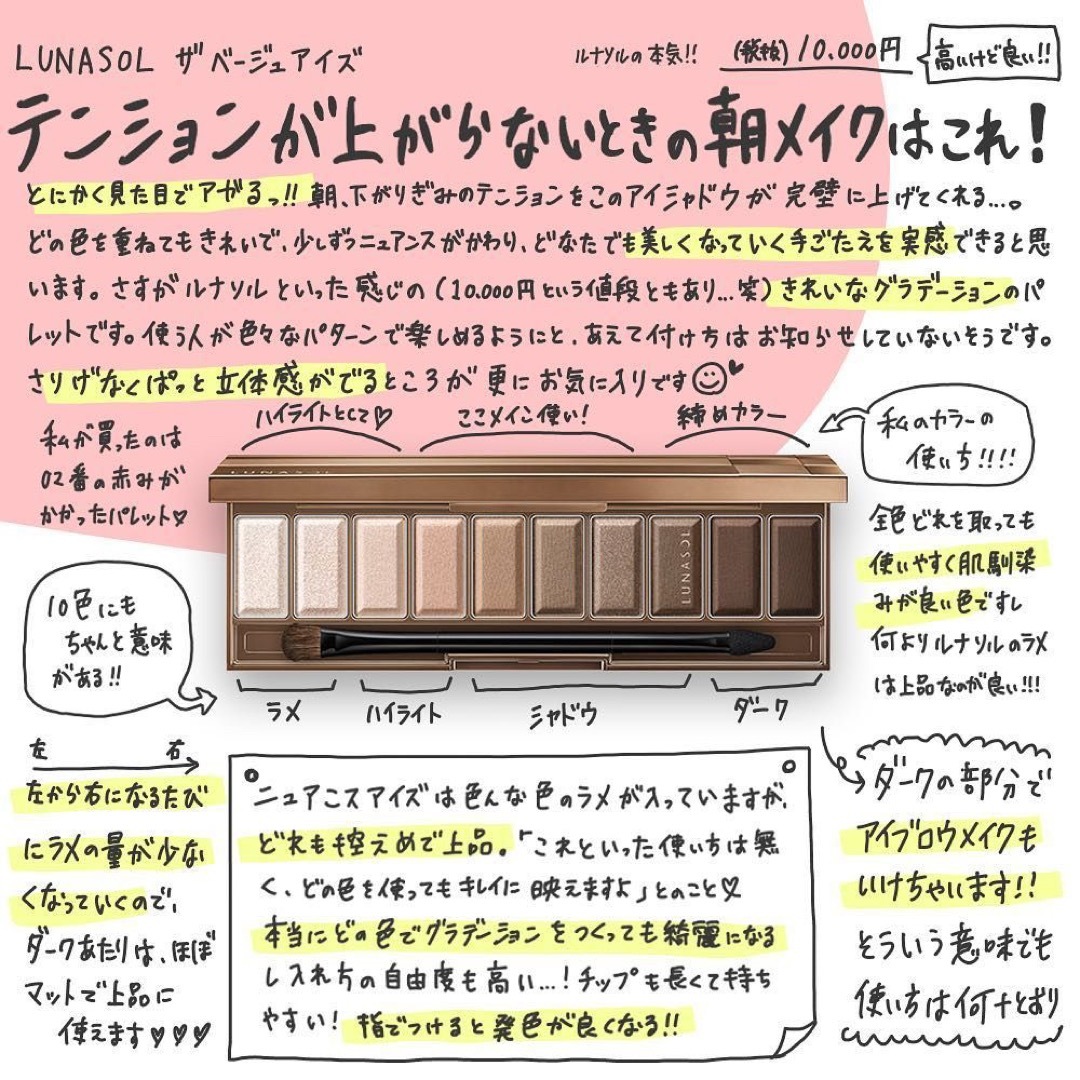 LUNASOL ザベージュアイズ
ルナソルの本気!!
(税抜)10.000円
高いけど良い!!
テンションが上がらないときの朝メイクはこれ!
とにかく見た目でアガるっ!! 朝、下がりぎみのテンションをこのアイシャドウが完璧に上げてくれる...。
どの色を重ねてもきれいで、少しずつニュアンスがかわり、どなたでも美しくなっていく手ごたえを実感できると思
います。さすがルナソルといった感じの(10.000円という値段ともあり...笑)きれいなグラデーションのパ
レットです。使う人が色々なパターンで楽しめるようにと、あえて付け方はお知らせしていないそうです。
さりげなくぱっと立体感がでるところが更にお気に入りです
ハイライトとして♡
ここメイン使い!
締めカラー
私のカラーの
使い方!!!!
私が買ったのは
02番の赤みが
かかったパレット♡
LUNASOL
LUNASOL
全色どれを取っても
使いやすく肌馴染
みが良い色ですし
何よりルナソルのラメ
は上品なのが良い!!!
10色にも
ちゃんと意味
がある!!
ラメ
ハイライト
シャドウ
ダーク
左 右
左から右になるたび
にラメの量が少な
くなっていくので、
ダークあたりは、ほぼ
マットで上品に
使えます♡♡♡
ニュアンスアイズは色んな色のラメが入っていますが、
どれも控えめで上品。「これといった使い方は無
く、どの色を使ってもキレイに映えますよ」とのこと♡
本当にどの色でグラデーションをつくっても綺麗になる
し入れ方の自由度も高い...!チップも長くて持ち
やすい! 指でつけると発色が良くなる!!
ダークの部分で
アイブロウメイクも
いけちゃいます!!
そういう意味でも
使い方は何十とおり